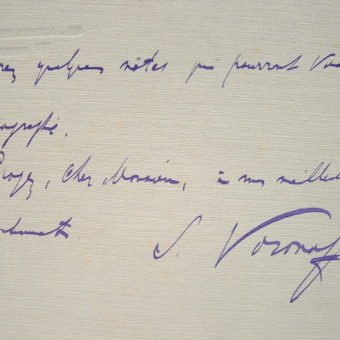 rez quelques notes qui pourront vou
ographie.
Croyez, cher Monsieur, à mes meille
S. Voronof